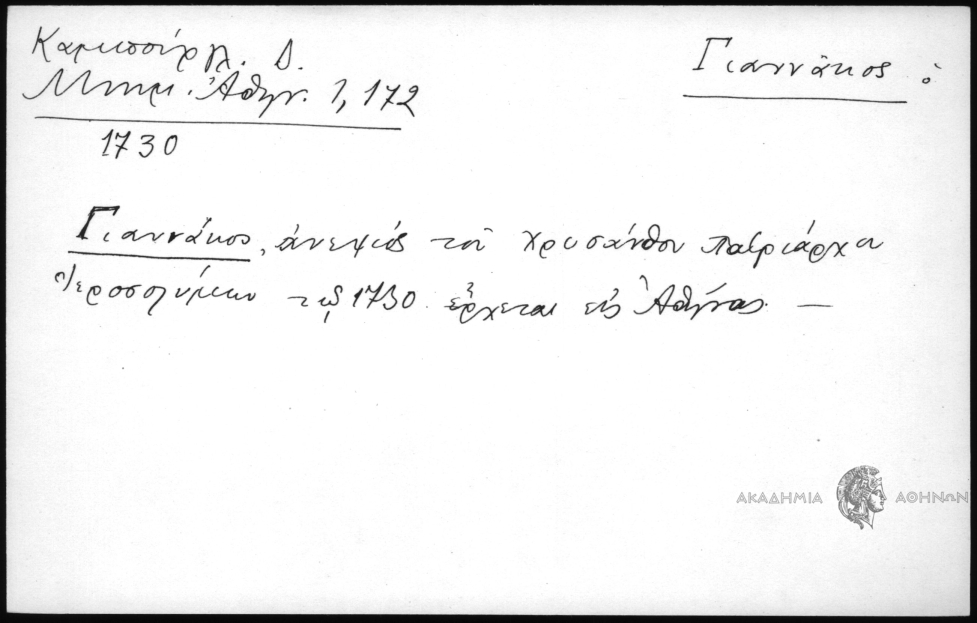 Καμπούρογλ. Δ.
Μνημ. Ἀθην. 1, 172
1730
Γιαννάκος ὁ
Γιαννάκος, ἀνεψιός τοῦ Χρυσάνθου Πατριάρχου
Ἱεροσολύμων τῷ 1730 ἔρχεται εἰς Ἀθήνας. —
ΑΚΑΔΗΜΙΑ ΑΘΗΝΩΝ